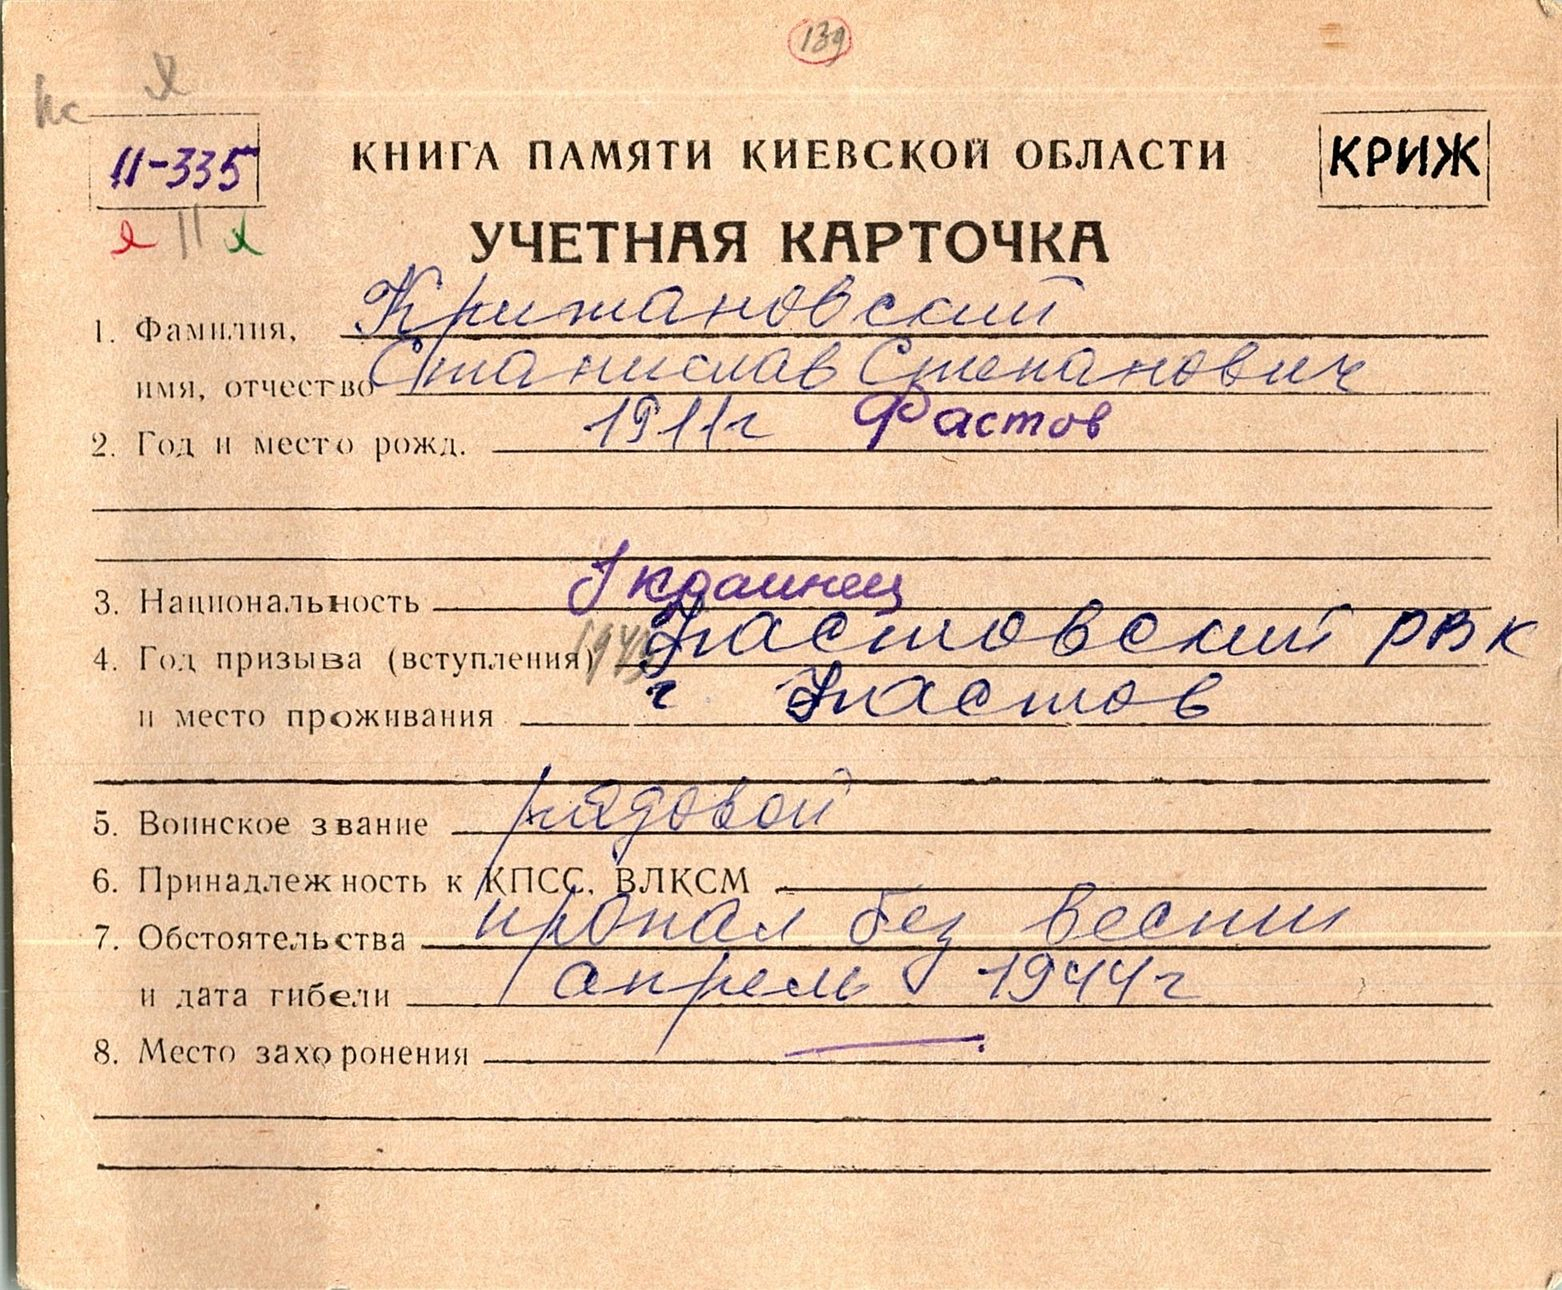 139
11-335
КНИГА ПАМЯТИ КИЕВСКОЙ ОБЛАСТИ
КРИЖ
УЧЕТНАЯ КАРТОЧКА
1. Фамилия, Крижановский
имя, отчество Станислав Степанович
2. Год и место рожд. 1911г Фастов
3. Национальность Украинец
4. Год призыва (вступления) Фастовский РВК
и место проживания г Фастов
5. Воинское звание рядовой
6. Принадлежность к КПСС, ВЛКСМ
7. Обстоятельства пропал без вести
и дата гибели апрель 1944г
8. Место захоронения —